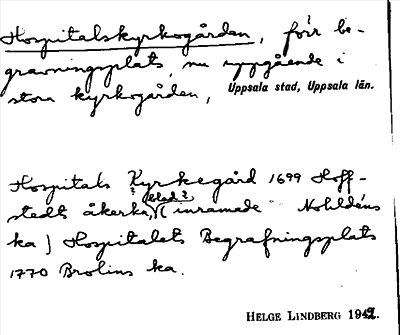 Hospitalskyrkogården, förr be-
gravningsplats, nu uppgående i
stora kyrkogården, Uppsala stad, Uppsala län.
Hospitals Kyrkegård 1699 Hoff-
stedts åkerka,
blad?
(inramade Nohldéns
ka) Hospitalets Begrafningsplats
1770 Brolins ka.
HELGE LINDBERG 1942.